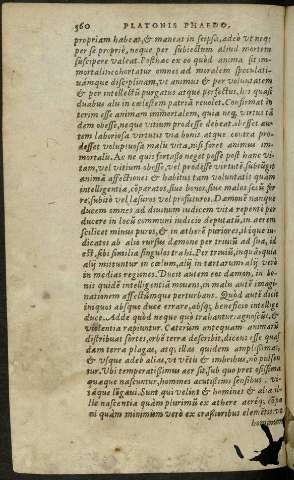 560 PLATONIS PHAEDO,
propriam habeat, & maneat in seipsa, adeò ut neq;
per se propriè, neque per subiectum aliud mortem
suscipere valeat. Posthac ex eo quòd anima sit im-
mortalis cohortatur omnes ad moralem speculati-
uámque disciplinam, ut animus & per voluntatem
& per intellectũ purgatus atque perfectus, his quasi
duabus alis in cœlestem patriã reuolet. Confirmat in
terim esse animam immortalem, quia neq; virtus tã
dem obesse, neque vitium prodesse debeat. obesset au-
tem laboriosa virtutis via bonis atque contra pro-
desset voluptuosa malis vita, nisi foret animus im-
mortalis. Ac ne quis fortasse neget posse post hanc vi-
tam, vel vitium obesse, vel prodesse virtutē, subiũgit
animã affectiones & habitus tam voluntatis quàm
intelligentiæ, cõparatos siue bonos, siue malos secũ fer
re, subitò vel læsuros vel profuturos. Damonē nanque
ducem omnes ad diuinum iudicem vita repente per
ducere in locũ communi iudicio deputatũ, in aerem
scilicet minus puros, & in athera puriores, ibique iu-
dicatos ab alio rursus damone per triuiũ ad sua, id
est, sibi similia singulos trahi. Per triuiũ, inquã quia
alij mittuntur in cœlum, alij in tartarum alij verò
in medias regiones. Ducit autem eos damon, in bo-
nis quidē intelligentiã mouens, in malis autē imagi-
nationem affectũmque perturbans. Quòd autē dicit
iniquos absque duce errare, absq; benefico intellige
duce. Adde quòd neque quò trahantur agnoscũt, &
violentia rapiuntur. Cæterùm antequam animarũ
distribuat sortes, orbē terra describit, dicens esse quas
dam terra plagas, atq; illas quidem amplissimas,
& usque adeò altas, ut vētis & imbribus, nõ pulsen
tur. Ubi temperatissimus aer sit, sub quo prет osissima
quæque nascuntur, homines acutissimi sensibus, vi-
táque lõgæui. Sunt qui velint & homines & alia in
illa nascentia quàm plurimũ ex athere aeréq; cõpo
ni quàm minimũm verò ex crassioribus elemētis. ut
hominum